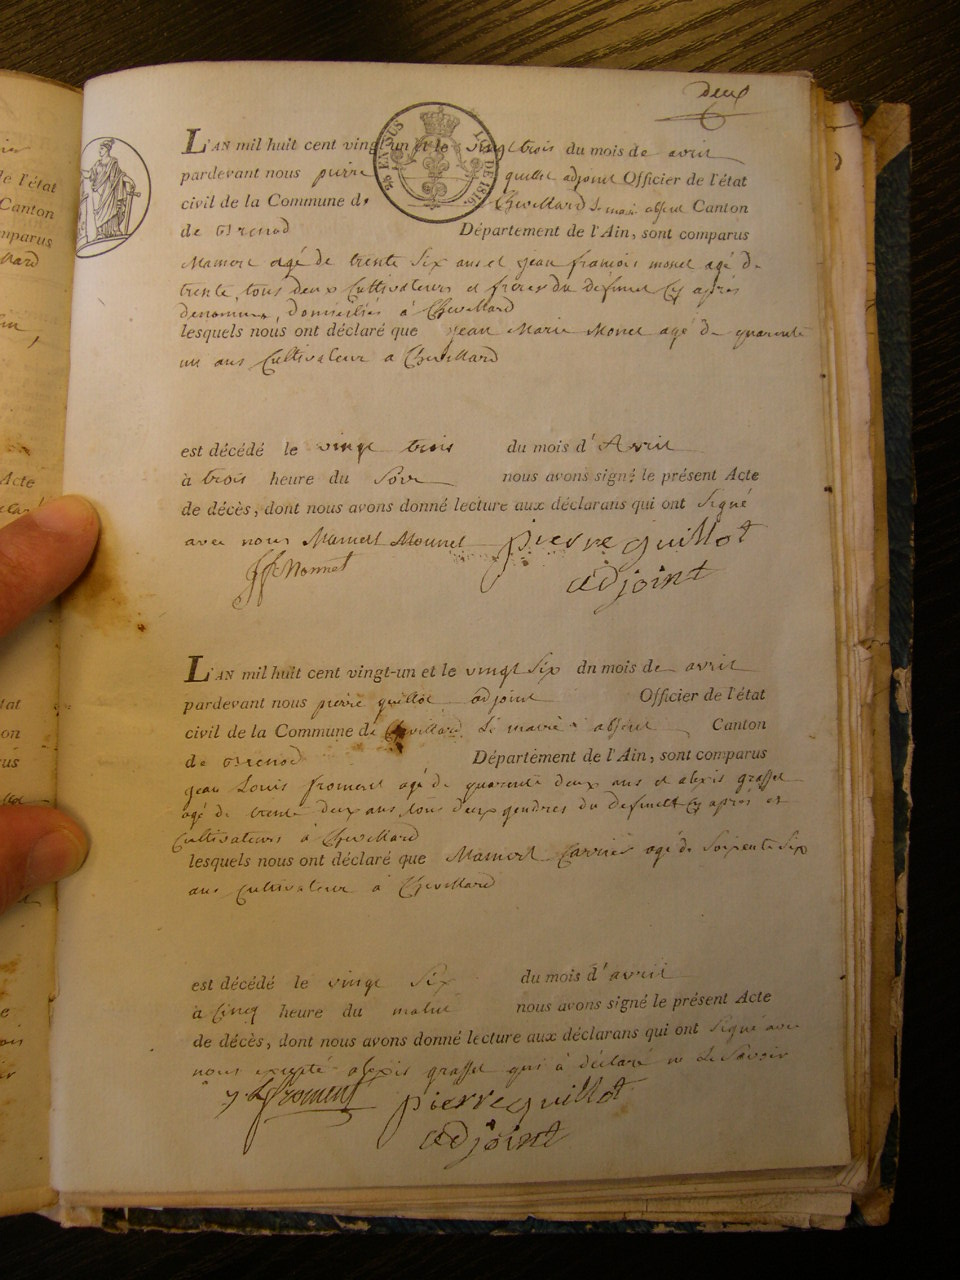 deux
L'AN mil huit cent vingt-un et le vingt trois du mois de avril
pardevant nous pierre guillot adjoint Officier de l'état
civil de la Commune de Chevillard le maire absent Canton
de Brenod Département de l'Ain, sont comparus
Mamert agé de trente six ans et jean françois monet agé de
trente, tous deux Cultivateurs et frères du defunct Cy après
denommé, domiciliés à Chevillard
lesquels nous ont déclaré que jean Marie Monet agé de quarante
un ans Cultivateur a Chevillard
est décédé le vingt trois du mois d'Avril
à trois heure du Soir nous avons signé le présent Acte
de décès, dont nous avons donné lecture aux déclarans qui ont Signé
avec nous Mamert Monnet pierre guillot
jf Monnet adjoint
L'AN mil huit cent vingt-un et le vingt Six dn mois de avril
pardevant nous pierre guillot adjoint Officier de l'état
civil de la Commune de Chevillard le maire absent Canton
de Brenod Département de l'Ain, sont comparus
jean Louis froment agé de quarente deux ans et alexis graffet
agé de trente deux ans tous deux gendres du defunct Cy après et
Cultivateurs à Chevillard
lesquels nous ont déclaré que Mamert Carrier agé de Soixente Six
ans cultivateur a Chevillard
est décédé le vingt Six du mois d'avril
à Cinq heure du matin nous avons signé le présent Acte
de décès, dont nous avons donné lecture aux déclarans qui ont Signé avec
nous excepté alexis graffet qui à déclaré ne le Savoir
j. L froment pierre guillot
adjoint